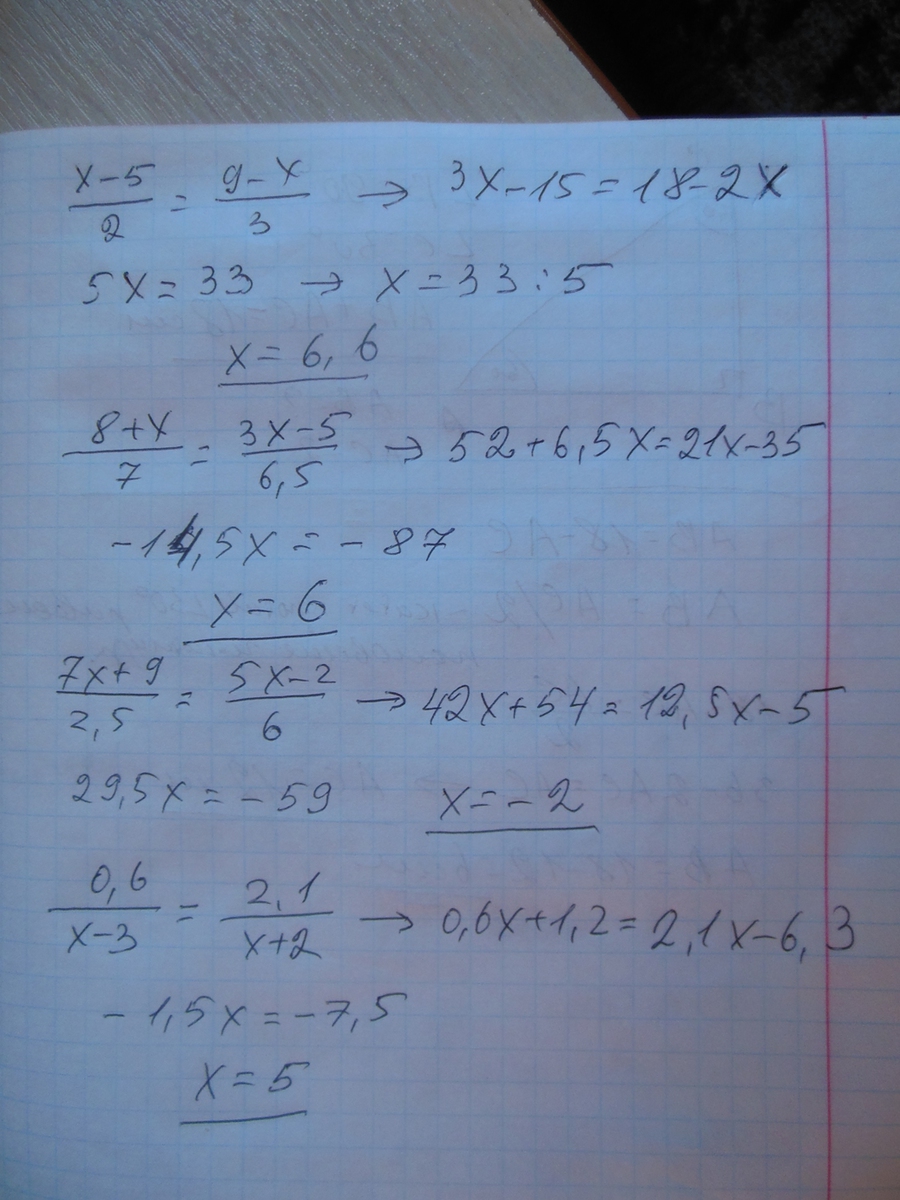 x-5/2 = 9-x/3 → 3x-15=18-2x
5x=33 → x=33:5
x=6,6
8+x/7 = 3x-5/6,5 → 52+6,5x=21x-35
-14,5x=-87
x=6
7x+9/2,5 = 5x-2/6 → 42x+54=12,5x-5
29,5x=-59 x=-2
0,6/x-3 = 2,1/x+2 → 0,6x+1,2=2,1x-6,3
-1,5x=-7,5
x=5